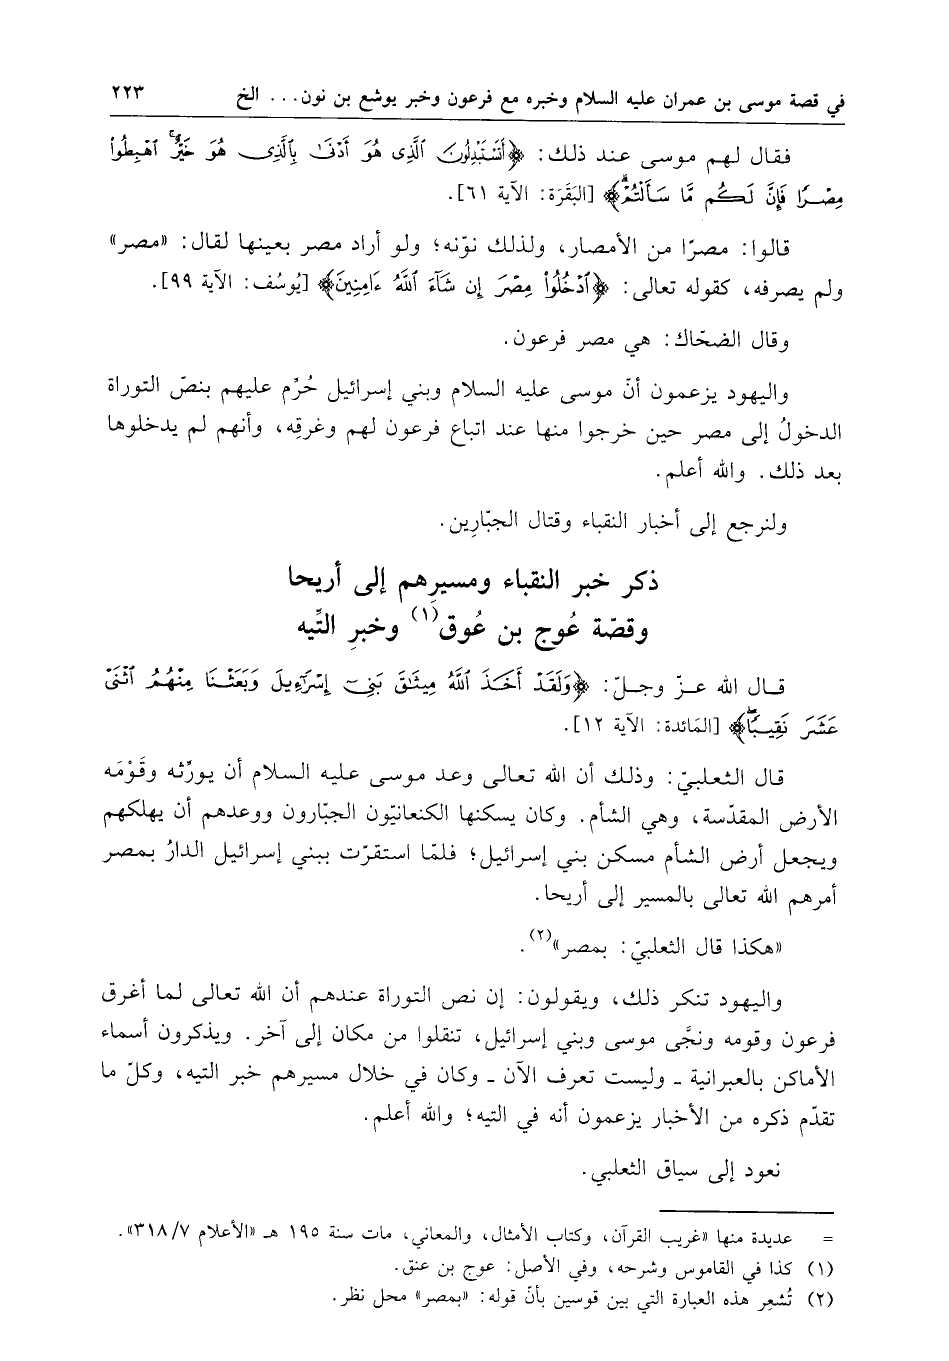 في قصة موسى بن عمران عليه السلام وخبره مع فرعون وخبر يوشع بن نون... الخ ٢٢٣
فقال لهم موسى عند ذلك: ﴿أَتَسْتَبْدِلُونَ ٱلَّذِى هُوَ أَدْنَىٰ بِٱلَّذِى هُوَ خَيْرٌ ٱهْبِطُوا۟
مِصْرًا فَإِنَّ لَكُم مَّا سَأَلْتُمْ﴾ [البَقَرَة: الآية ٦١].
قالوا: مصرًا من الأمصار، ولذلك نوّنه؛ ولو أراد مصر بعينها لقال: «مصر»
ولم يصرفه، كقوله تعالى: ﴿ٱدْخُلُوا۟ مِصْرَ إِن شَآءَ ٱللَّهُ ءَامِنِينَ﴾ [يُوسُف: الآية ٩٩].
وقال الضحّاك: هي مصر فرعون.
واليهود يزعمون أنّ موسى عليه السلام وبني إسرائيل حُرِّم عليهم بنصّ التوراة
الدخولُ إلى مصر حين خرجوا منها عند اتباع فرعون لهم وغرقِه، وأنهم لم يدخلوها
بعد ذلك. والله أعلم.
ولنرجع إلى أخبار النقباء وقتال الجبّارِين.
ذكر خبر النقباء ومسيرِهم إلى أريحا
وقصّة عُوج بن عُوق(١) وخبرِ التِّيه
قال الله عزّ وجلّ: ﴿وَلَقَدْ أَخَذَ ٱللَّهُ مِيثَٰقَ بَنِىٓ إِسْرَٰٓءِيلَ وَبَعَثْنَا مِنْهُمُ ٱثْنَىْ
عَشَرَ نَقِيبًا﴾ [المَائدة: الآية ١٢].
قال الثعلبيّ: وذلك أن الله تعالى وعد موسى عليه السلام أن يورِّثه وقَوْمَه
الأرض المقدّسة، وهي الشأم. وكان يسكنها الكنعانيّون الجبّارون ووعدهم أن يهلكهم
ويجعل أرض الشأم مسكن بني إسرائيل؛ فلمّا استقرّت ببني إسرائيل الدارُ بمصر
أمرهم الله تعالى بالمسير إلى أريحا.
«هكذا قال الثعلبيّ: بمصر»(٢).
واليهود تنكر ذلك، ويقولون: إن نص التوراة عندهم أن الله تعالى لما أغرق
فرعون وقومه ونجَّى موسى وبني إسرائيل، تنقلوا من مكان إلى آخر. ويذكرون أسماء
الأماكن بالعبرانية ـ وليست تعرف الآن ـ وكان في خلال مسيرهم خبر التيه، وكلّ ما
تقدّم ذكره من الأخبار يزعمون أنه في التيه؛ والله أعلم.
نعود إلى سياق الثعلبي.
= عديدة منها «غريب القرآن، وكتاب الأمثال، والمعاني، مات سنة ١٩٥ هـ «الأعلام ٣١٨/٧».
(١) كذا في القاموس وشرحه، وفي الأصل: عوج بن عنق.
(٢) تُشعِر هذه العبارة التي بين قوسين بأنّ قوله: «بمصر» محل نظر.